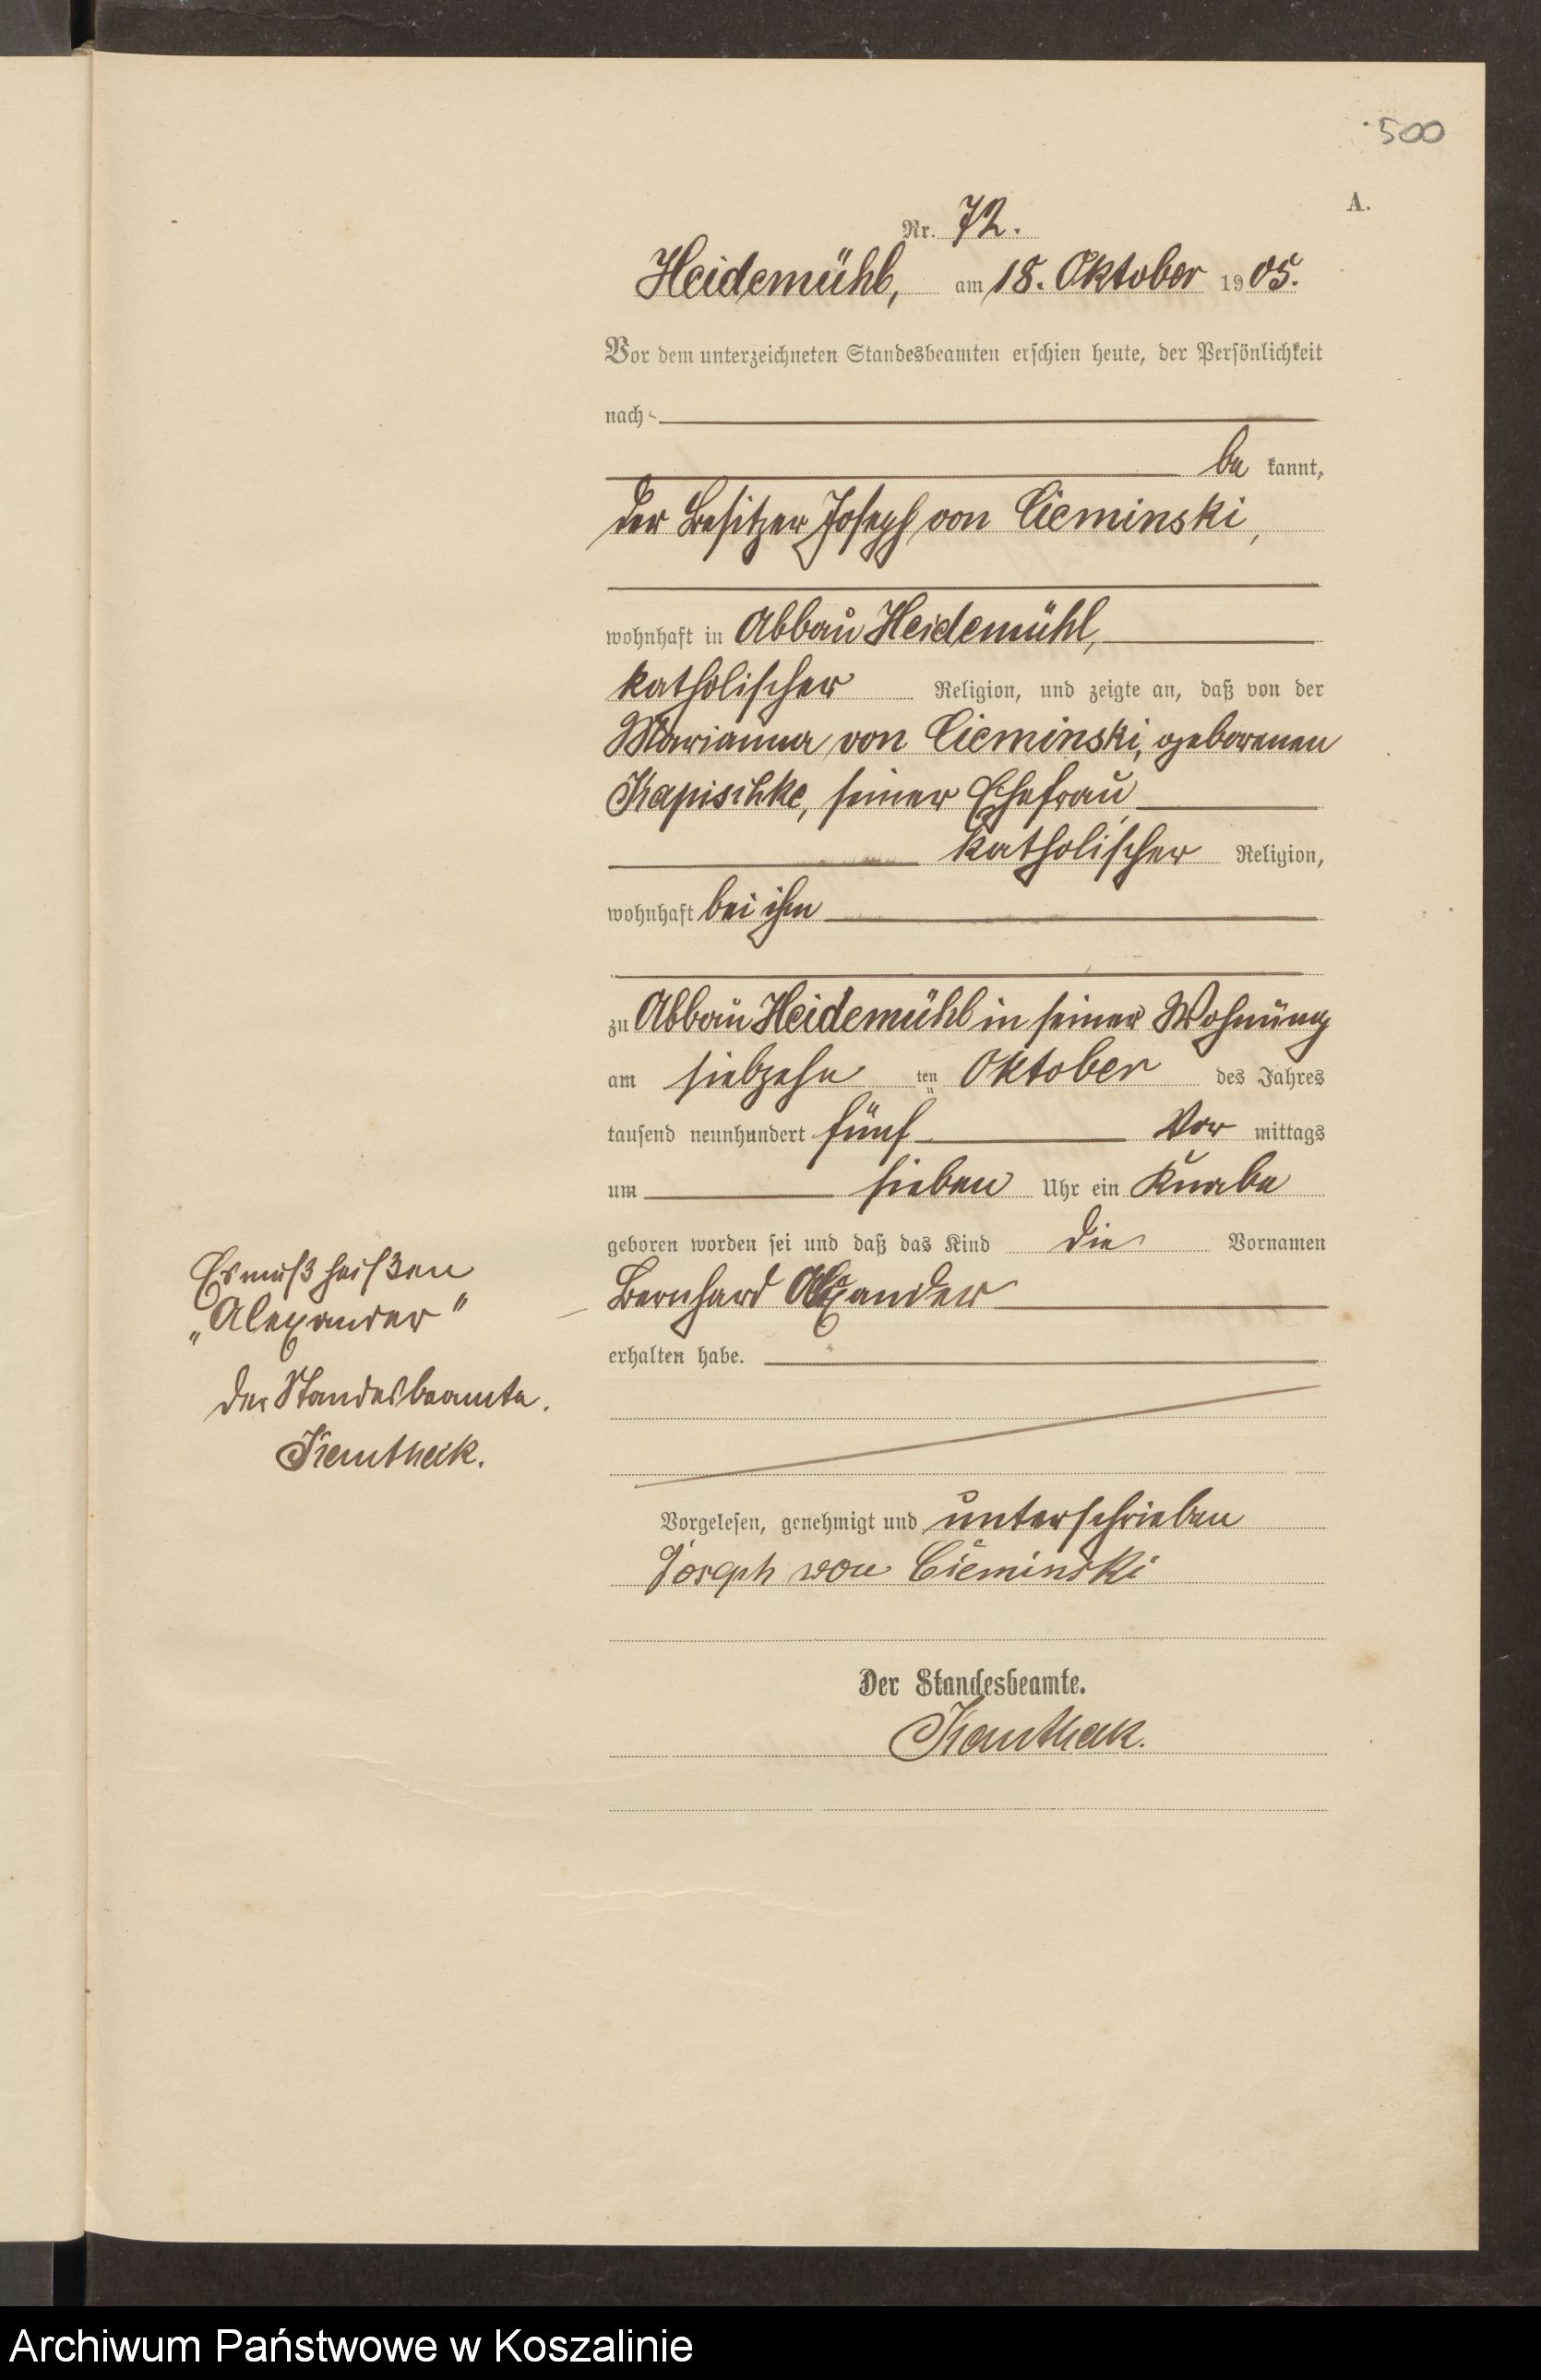 500
A.
Nr. 72.
Heidemühl, am 18. Oktober 1905.
Vor dem unterzeichneten Standesbeamten erschien heute, der Persönlichkeit
nach
be kannt,
der Besitzer Joseph von Cieminski,
wohnhaft in Abbau Heidemühl,
katholischer Religion, und zeigte an, daß von der
Marianna von Cieminski, geborenen
Kapischke, seiner Ehefrau,
katholischer Religion,
wohnhaft bei ihm
zu Abbau Heidemühl in seiner Wohnung
am siebzehn ten Oktober des Jahres
tausend neunhundert fünf Vor mittags
um sieben Uhr ein Knabe
geboren worden sei und daß das Kind die Vornamen
Bernhard Alexander
erhalten habe.
Es muß heißen
„Alexander"
Der Standesbeamte.
Vorgelesen, genehmigt und unterschrieben
Joseph von Cieminski
Der Standesbeamte.
Archiwum Państwowe w Koszalinie